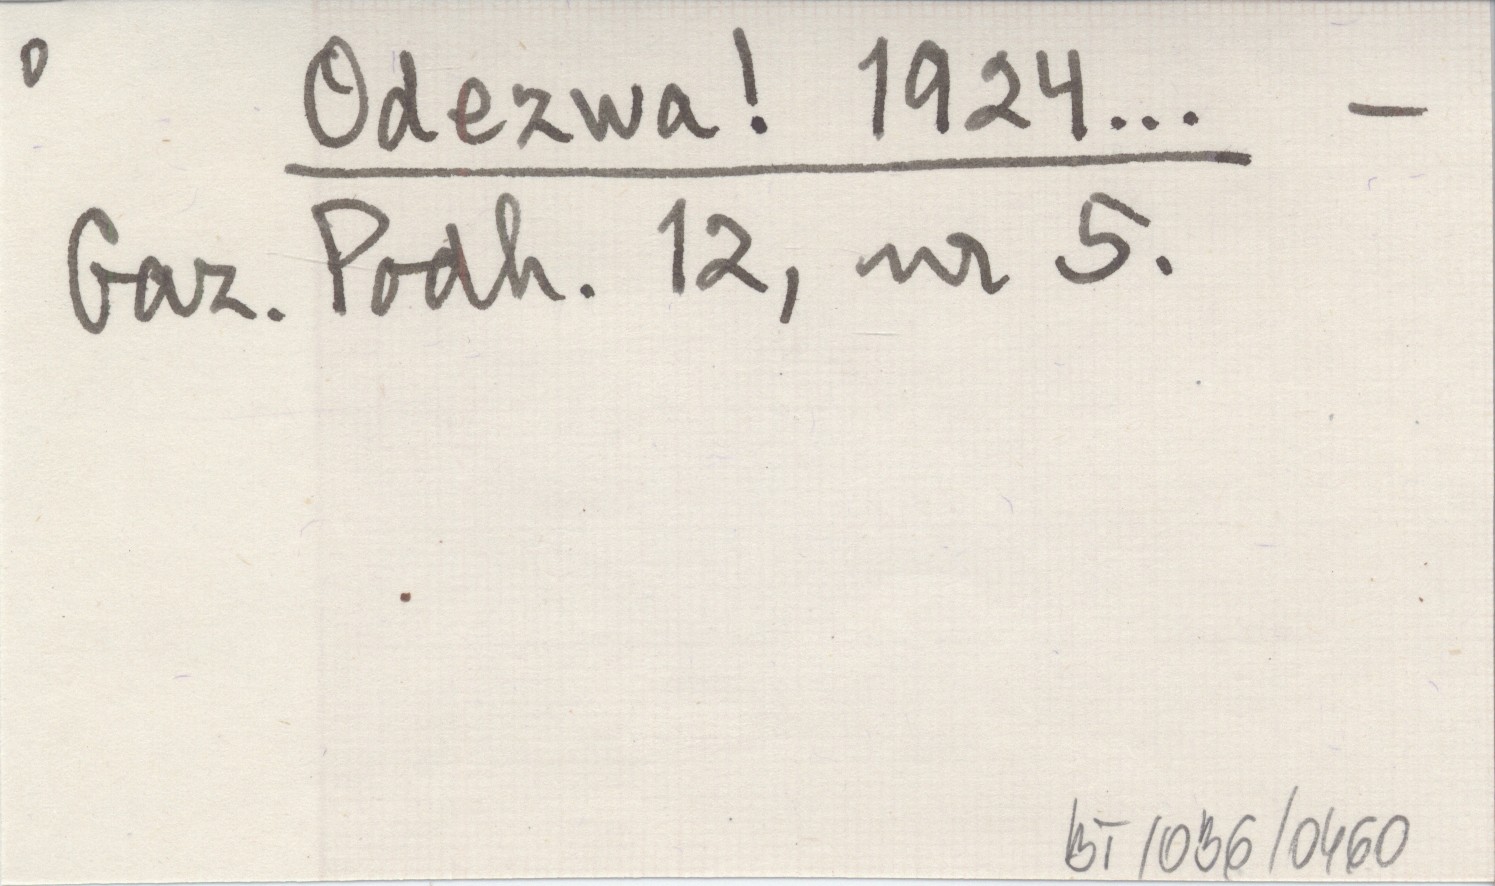 o Odezwa! 1924... —
Gaz. Podh. 12, nr 5.
BT/036/0460